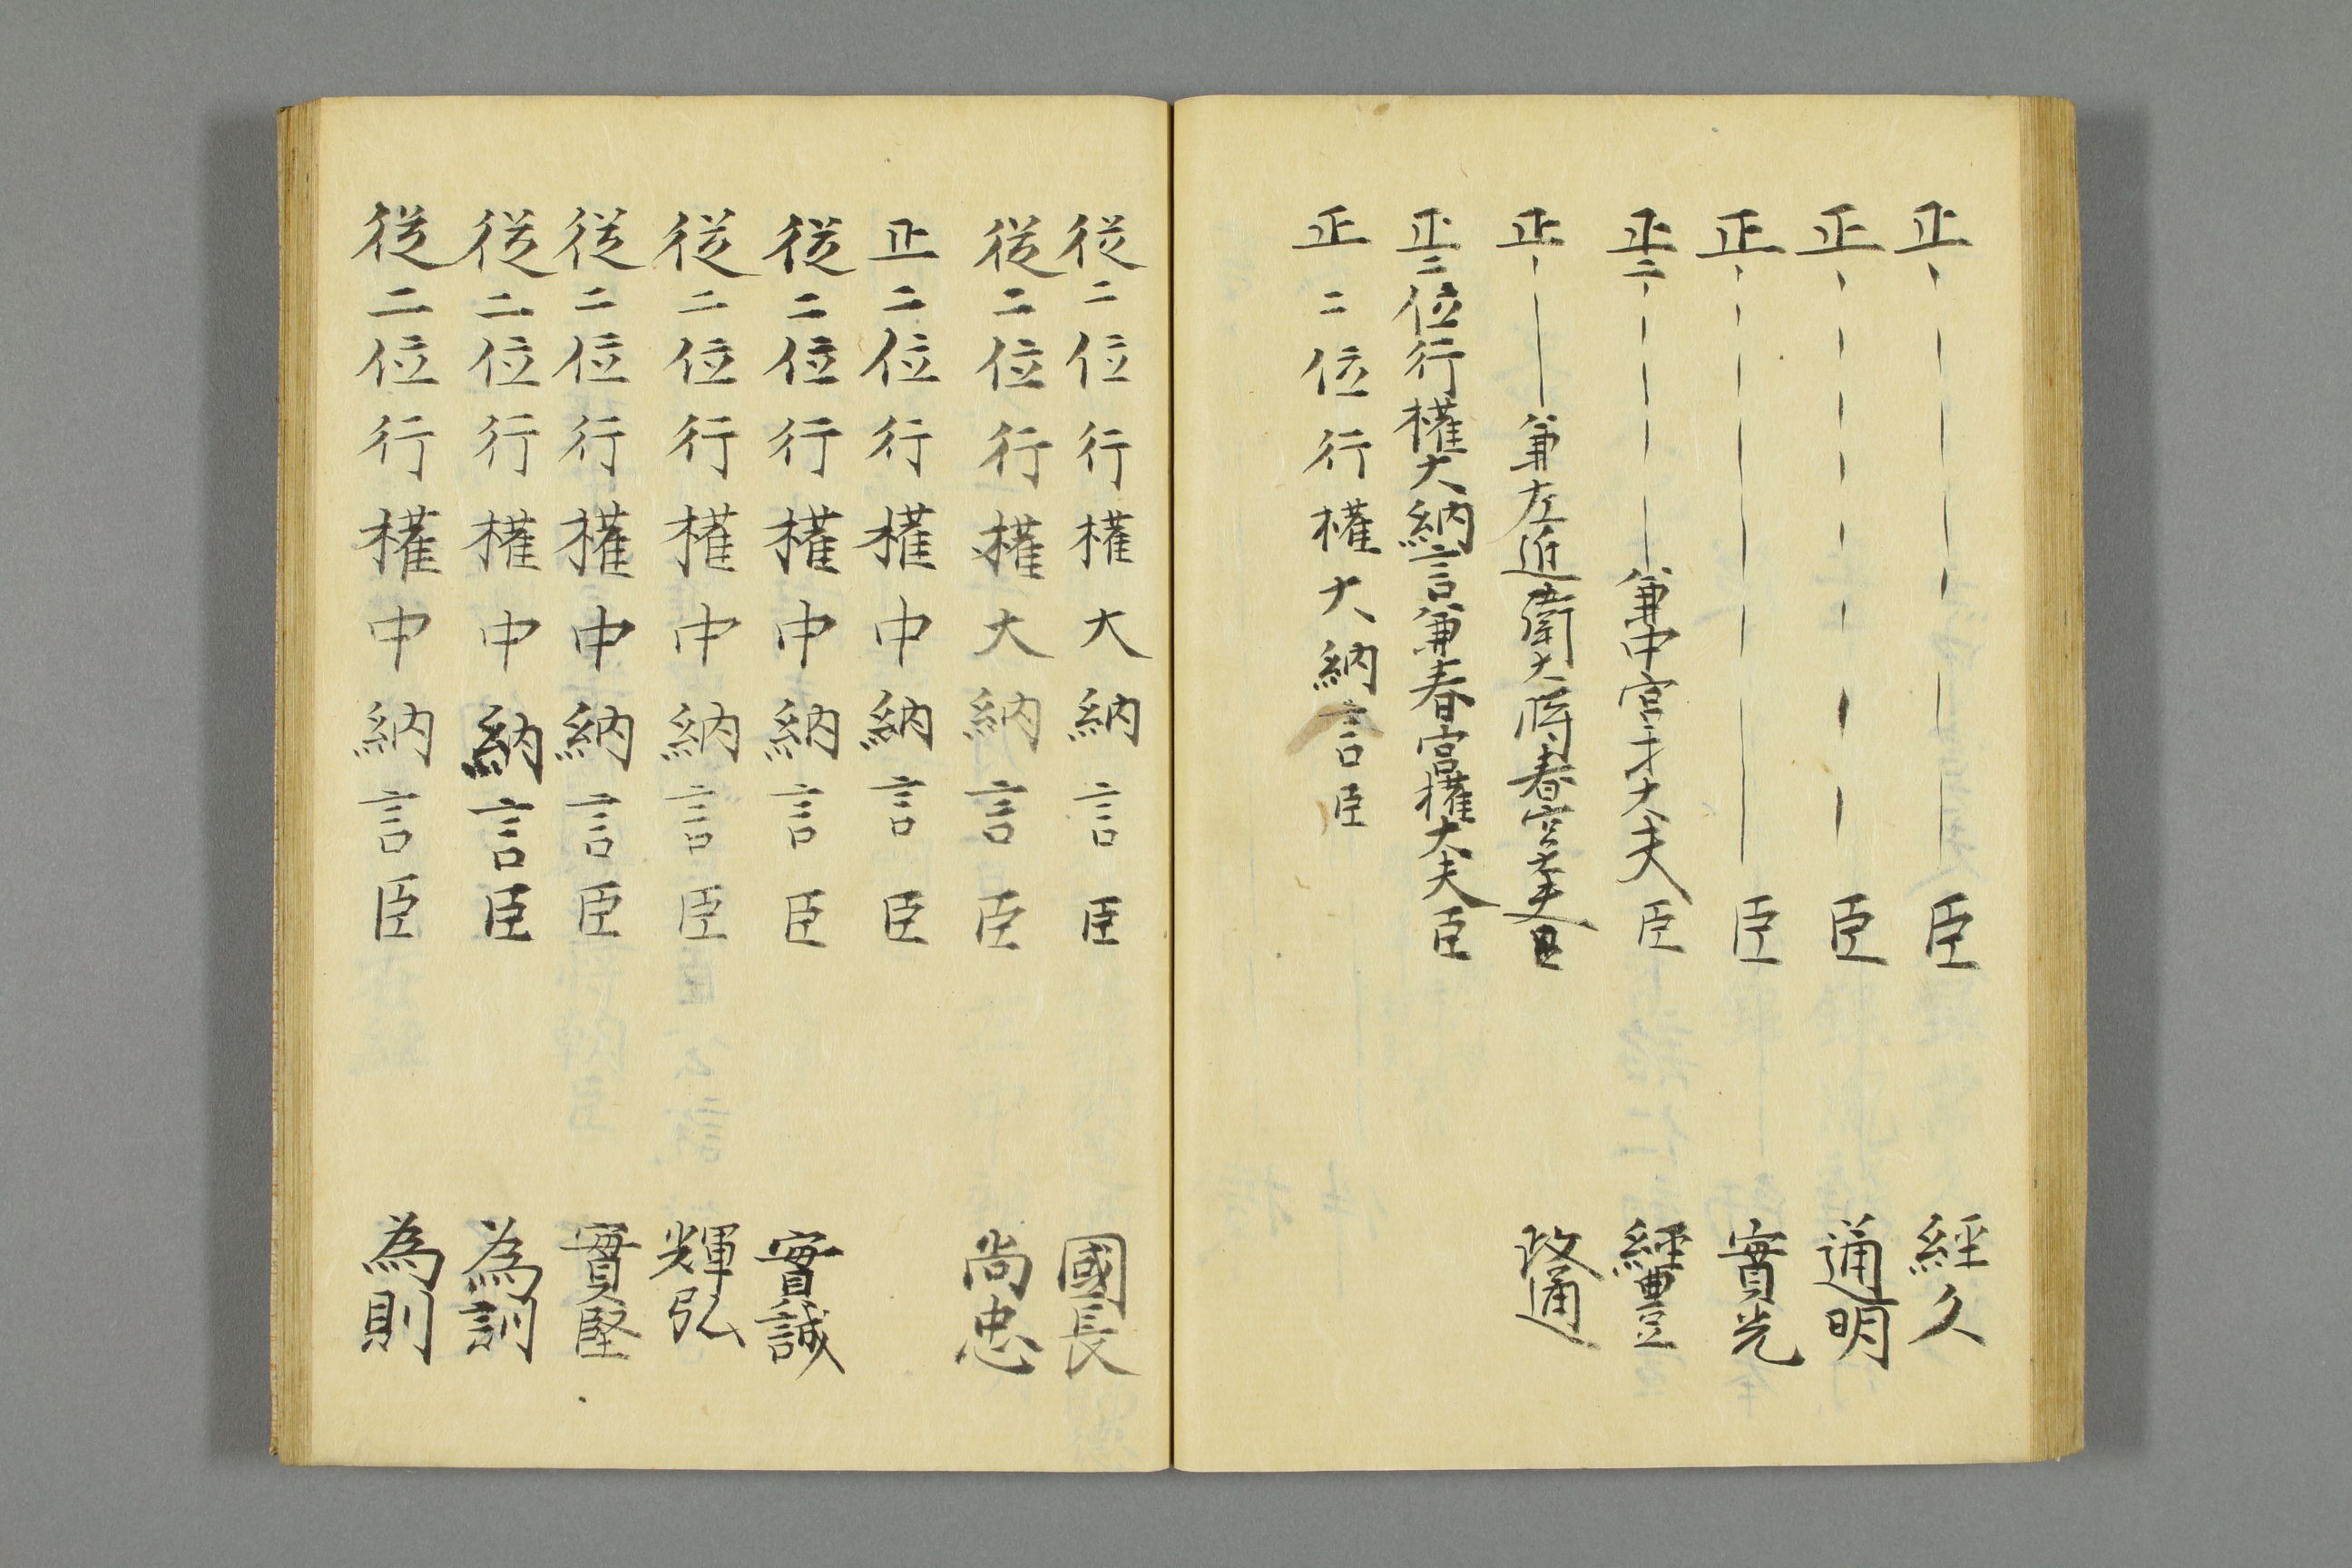 正 臣 經久
正 臣 通明
正 臣 實光
正二 兼中宮大夫臣 經豐
正 兼左近衛大將春宮大夫臣 政通
正二位行權大納言兼春宮權大夫臣
正二位行權大納言臣
従二位行權大納言臣 國長
従二位行權大納言臣 尚忠
正二位行權中納言臣
従二位行權中納言臣 實誠
従二位行權中納言臣 輝弘
従二位行權中納言臣 實堅
従二位行權中納言臣 為訓
従二位行權中納言臣 為則